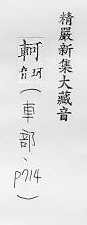 精嚴新集大藏音
軻(一車部、p714)